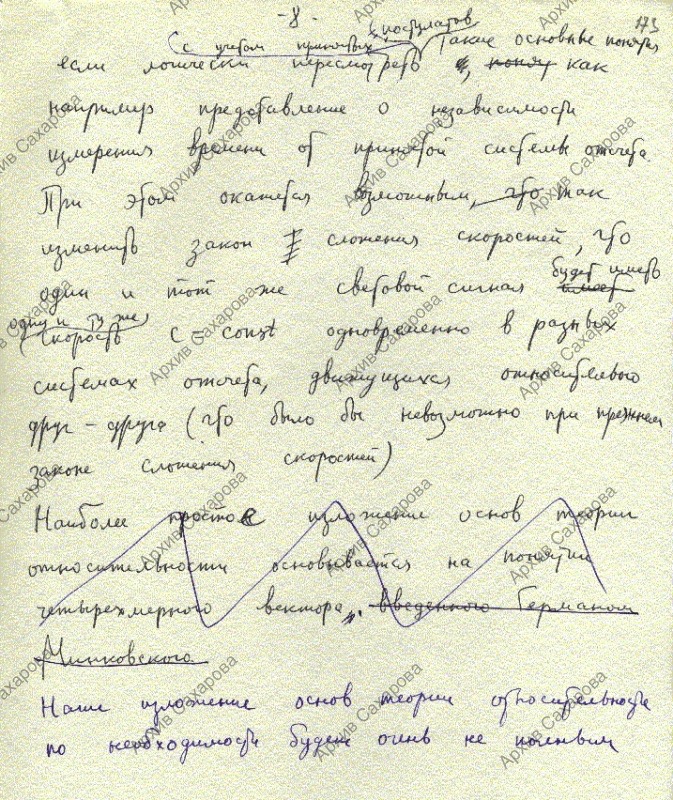 - 8 - 173
с учетом принятых постулатов
если логически пересмотреть такие основные понятия, понят как
например представление о независимости
измерения времени от принятой системы отсчета.
При этом окажется возможным, что так
изменить закон сложения скоростей, что
один и тот же световой сигнал имеет будет иметь
одну и ту же
скорость c = const одновременно в разных
системах отсчета, движущихся относительно
друг-друга (что было бы невозможно при прежнем
законе сложения скоростей)
Наиболее простое изложение основ теории
относительности основывается на понятии
четырехмерного вектора, введенного Германом
Минковского.
Наше изложение основ теории относительности
по необходимости будет очень не полным
Архив Сахарова